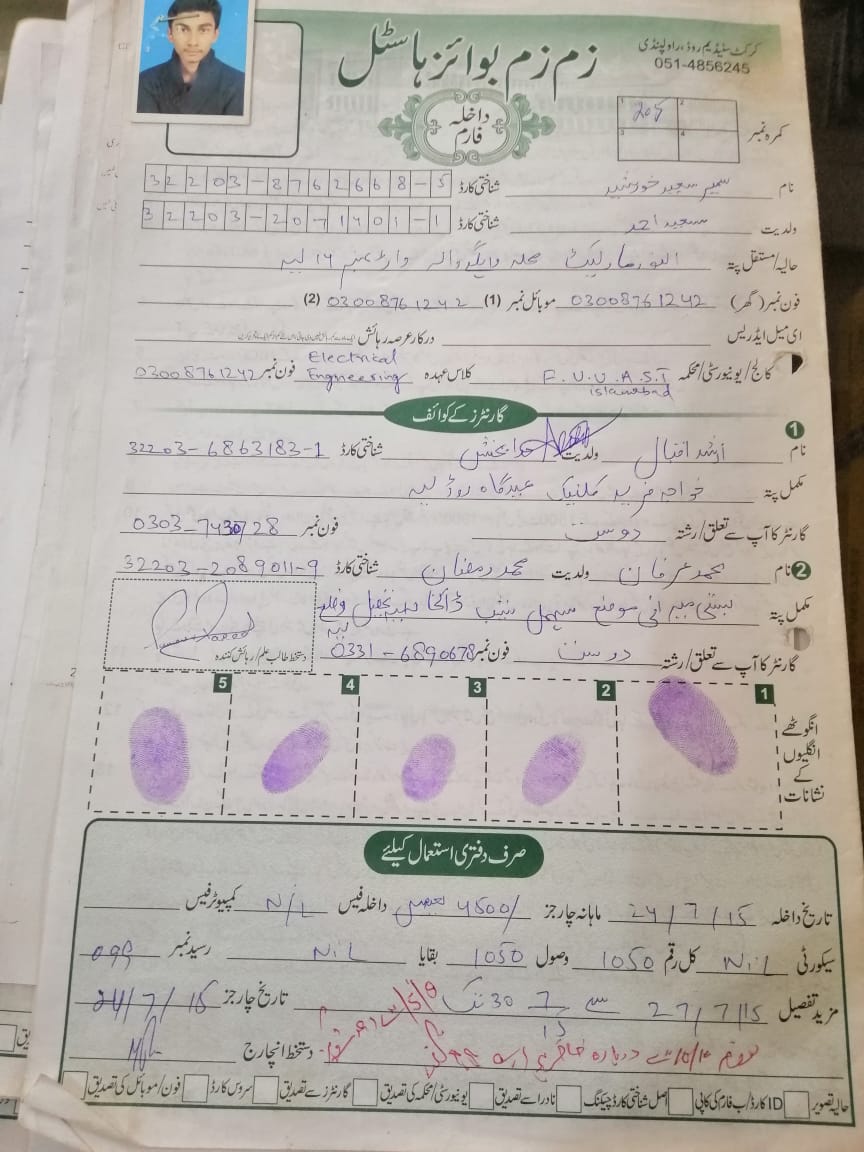 زم زم بوائز ہاسٹل
کرکٹ سٹیڈیم روڈ، راولپنڈی
051-4856245
داخلہ فارم
کمرہ نمبر 1 205 2 3 4
نام سمیر سعید خورشید شناختی کارڈ 32203-8762668-5
ولدیت سعید احمد شناختی کارڈ 32203-2071401-1
حالیہ/مستقل پتہ النور مارکیٹ محلہ والہ وارڈ نمبر 14 لیہ
فون نمبر (گھر) 03008761242 موبائل نمبر (1) 03008761242 (2)
ای میل ایڈریس درکار عرصہ رہائش
کالج/یونیورسٹی/محکمہ F.U.U.A.S.T islamabad کلاس عہدہ Electrical Engneering فون نمبر 03008761242
گارنٹرز کے کوائف
1 نام ارشد اقبال ولدیت خدا بخش شناختی کارڈ 32203-6863183-1
مکمل پتہ خواجہ فرید کلینک عیدگاہ روڈ لیہ
گارنٹر کا آپ سے تعلق/رشتہ دوست فون نمبر 0303-7430728
2 نام محمد عرفان ولدیت محمد رمضان شناختی کارڈ 32203-2089011-9
مکمل پتہ بستی میرانی موضع نشیب تحصیل و ضلع لیہ
گارنٹر کا آپ سے تعلق/رشتہ دوست فون نمبر 0331-6890678
دستخط طالب علم/رہائش کنندہ
انگوٹھے انگلیوں کے نشانات 1 2 3 4 5
صرف دفتری استعمال کیلئے
تاریخ داخلہ 24/7/15 ماہانہ چارجز 4500/ داخلہ فیس N/L کمپیوٹر فیس
سیکورٹی Nil کل رقم 1050 وصول 1050 بقایا Nil رسید نمبر 099
مزید تفصیل 27/7/15 سے 30 تک تاریخ چارجز 24/7/15
دوبارہ دستخط انچارج
حالیہ تصویر ID کارڈ/ب فارم کی کاپی اصل شناختی کارڈ چیکنگ نادرا سے تصدیق یونیورسٹی/محکمہ کی تصدیق گارنٹرز سے تصدیق سروس کارڈ فون/موبائل کی تصدیق